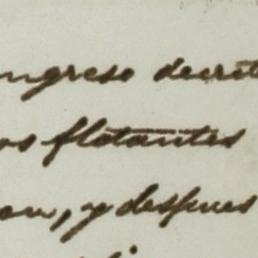 ongreso decret
os flotantes
on, y despues